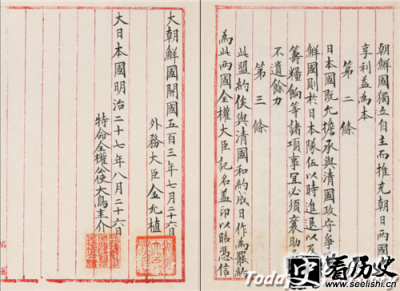 朝鮮國獨立自主而推充朝日兩國
享利益為本
第二條
日本國既允擔承與清國攻守爭
鮮國則於日本隊伍以時進退以及
籌糧餉等諸項事宜必須襄助
不遺餘力
第三條
此盟約俟與清國和約成日作為罷約
為此兩國全權大臣記名蓋印以昭憑信
大朝鮮國開國五百三年七月二十六日
外務大臣金允植
大日本國明治二十七年八月二十六日
特命全權公使大鳥圭介
Toda
看历史
www.seelishi.cn